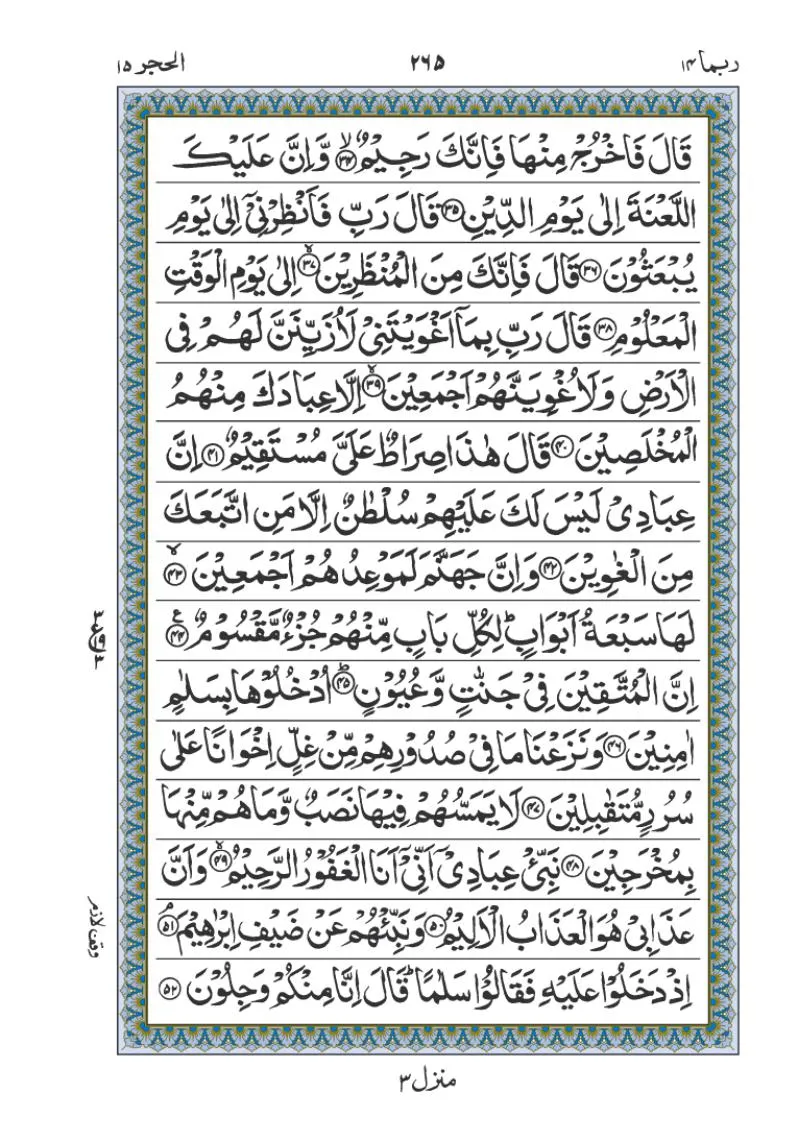 ربما ۱۴ ۲۶۵ الحجر ۱۵
قَالَ فَاخۡرُجۡ مِنۡهَا فَاِنَّكَ رَجِيۡمٌۙ‏﴿۳۴﴾ وَّاِنَّ عَلَيۡكَ
اللَّعۡنَةَ اِلٰى يَوۡمِ الدِّيۡنِ‏﴿۳۵﴾ قَالَ رَبِّ فَاَنۡظِرۡنِىۡۤ اِلٰى يَوۡمِ
يُبۡعَثُوۡنَ‏﴿۳۶﴾ قَالَ فَاِنَّكَ مِنَ الۡمُنۡظَرِيۡنَۙ‏﴿۳۷﴾ اِلٰى يَوۡمِ الۡوَقۡتِ
الۡمَعۡلُوۡمِ‏﴿۳۸﴾ قَالَ رَبِّ بِمَاۤ اَغۡوَيۡتَنِىۡ لَاُزَيِّنَنَّ لَهُمۡ فِى
الۡاَرۡضِ وَلَاُغۡوِيَنَّهُمۡ اَجۡمَعِيۡنَۙ‏﴿۳۹﴾ اِلَّا عِبَادَكَ مِنۡهُمُ
الۡمُخۡلَصِيۡنَ‏﴿۴۰﴾ قَالَ هٰذَا صِرَاطٌ عَلَىَّ مُسۡتَقِيۡمٌ‏﴿۴۱﴾ اِنَّ
عِبَادِىۡ لَيۡسَ لَكَ عَلَيۡهِمۡ سُلۡطٰنٌ اِلَّا مَنِ اتَّبَعَكَ
مِنَ الۡغٰوِيۡنَ‏﴿۴۲﴾ وَاِنَّ جَهَنَّمَ لَمَوۡعِدُهُمۡ اَجۡمَعِيۡنَۙ‏﴿۴۳﴾
لَهَا سَبۡعَةُ اَبۡوَابٍؕ لِكُلِّ بَابٍ مِّنۡهُمۡ جُزۡءٌ مَّقۡسُوۡمٌ‏﴿۴۴﴾
اِنَّ الۡمُتَّقِيۡنَ فِىۡ جَنّٰتٍ وَّعُيُوۡنٍؕ‏﴿۴۵﴾ اُدۡخُلُوۡهَا بِسَلٰمٍ
اٰمِنِيۡنَ‏﴿۴۶﴾ وَنَزَعۡنَا مَا فِىۡ صُدُوۡرِهِمۡ مِّنۡ غِلٍّ اِخۡوَانًا عَلٰى
سُرُرٍ مُّتَقٰبِلِيۡنَ‏﴿۴۷﴾ لَا يَمَسُّهُمۡ فِيۡهَا نَصَبٌ وَّمَا هُمۡ مِّنۡهَا
بِمُخۡرَجِيۡنَ‏﴿۴۸﴾ نَبِّئۡ عِبَادِىۡۤ اَنِّىۡۤ اَنَا الۡغَفُوۡرُ الرَّحِيۡمُۙ‏﴿۴۹﴾ وَاَنَّ
عَذَابِىۡ هُوَ الۡعَذَابُ الۡاَلِيۡمُ‏﴿۵۰﴾ وَنَبِّئۡهُمۡ عَنۡ ضَيۡفِ اِبۡرٰهِيۡمَۘ‏﴿۵۱﴾
اِذۡ دَخَلُوۡا عَلَيۡهِ فَقَالُوۡا سَلٰمًاؕ قَالَ اِنَّا مِنۡكُمۡ وَجِلُوۡنَ‏﴿۵۲﴾
۳ ع ۳
وقف لازم
منزل ۳